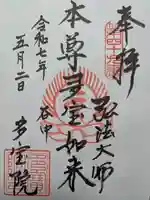 奉拝
弘法大師
本尊多宝如来
谷中
令和七年
五月二日
多宝院